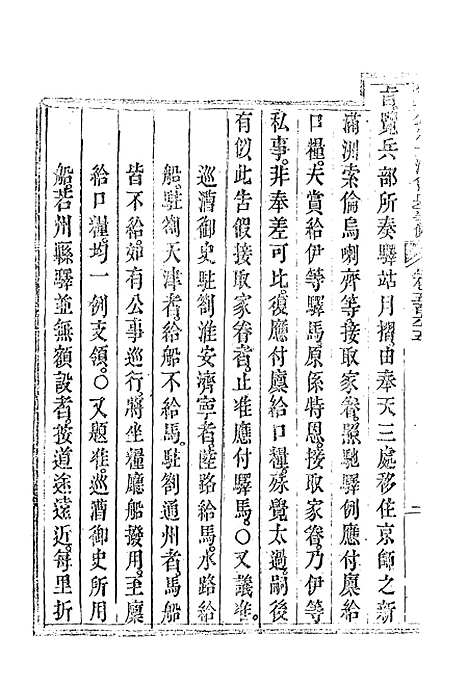 旨覽兵部所奏驛站月摺由奉天三處移住京師之新
滿洲索倫烏喇齊等接取家眷照馳驛例應付廩給
口糧夫賞給伊等驛馬原係特恩接取家眷乃伊等
私事非奉差可比復應付廩給口糧殊覺太過嗣後
有似此告假接取家眷者止准應付驛馬〇又議准
巡漕御史駐劄淮安濟寧者陸路給馬水路給
船駐劄天津者給船不給馬駐劄通州者馬船
皆不給如有公事巡行將坐糧廳船撥用至廩
給口糧均一例支領〇又題准巡漕御史所用
船若州縣驛並無額設者按道途遠近每里折